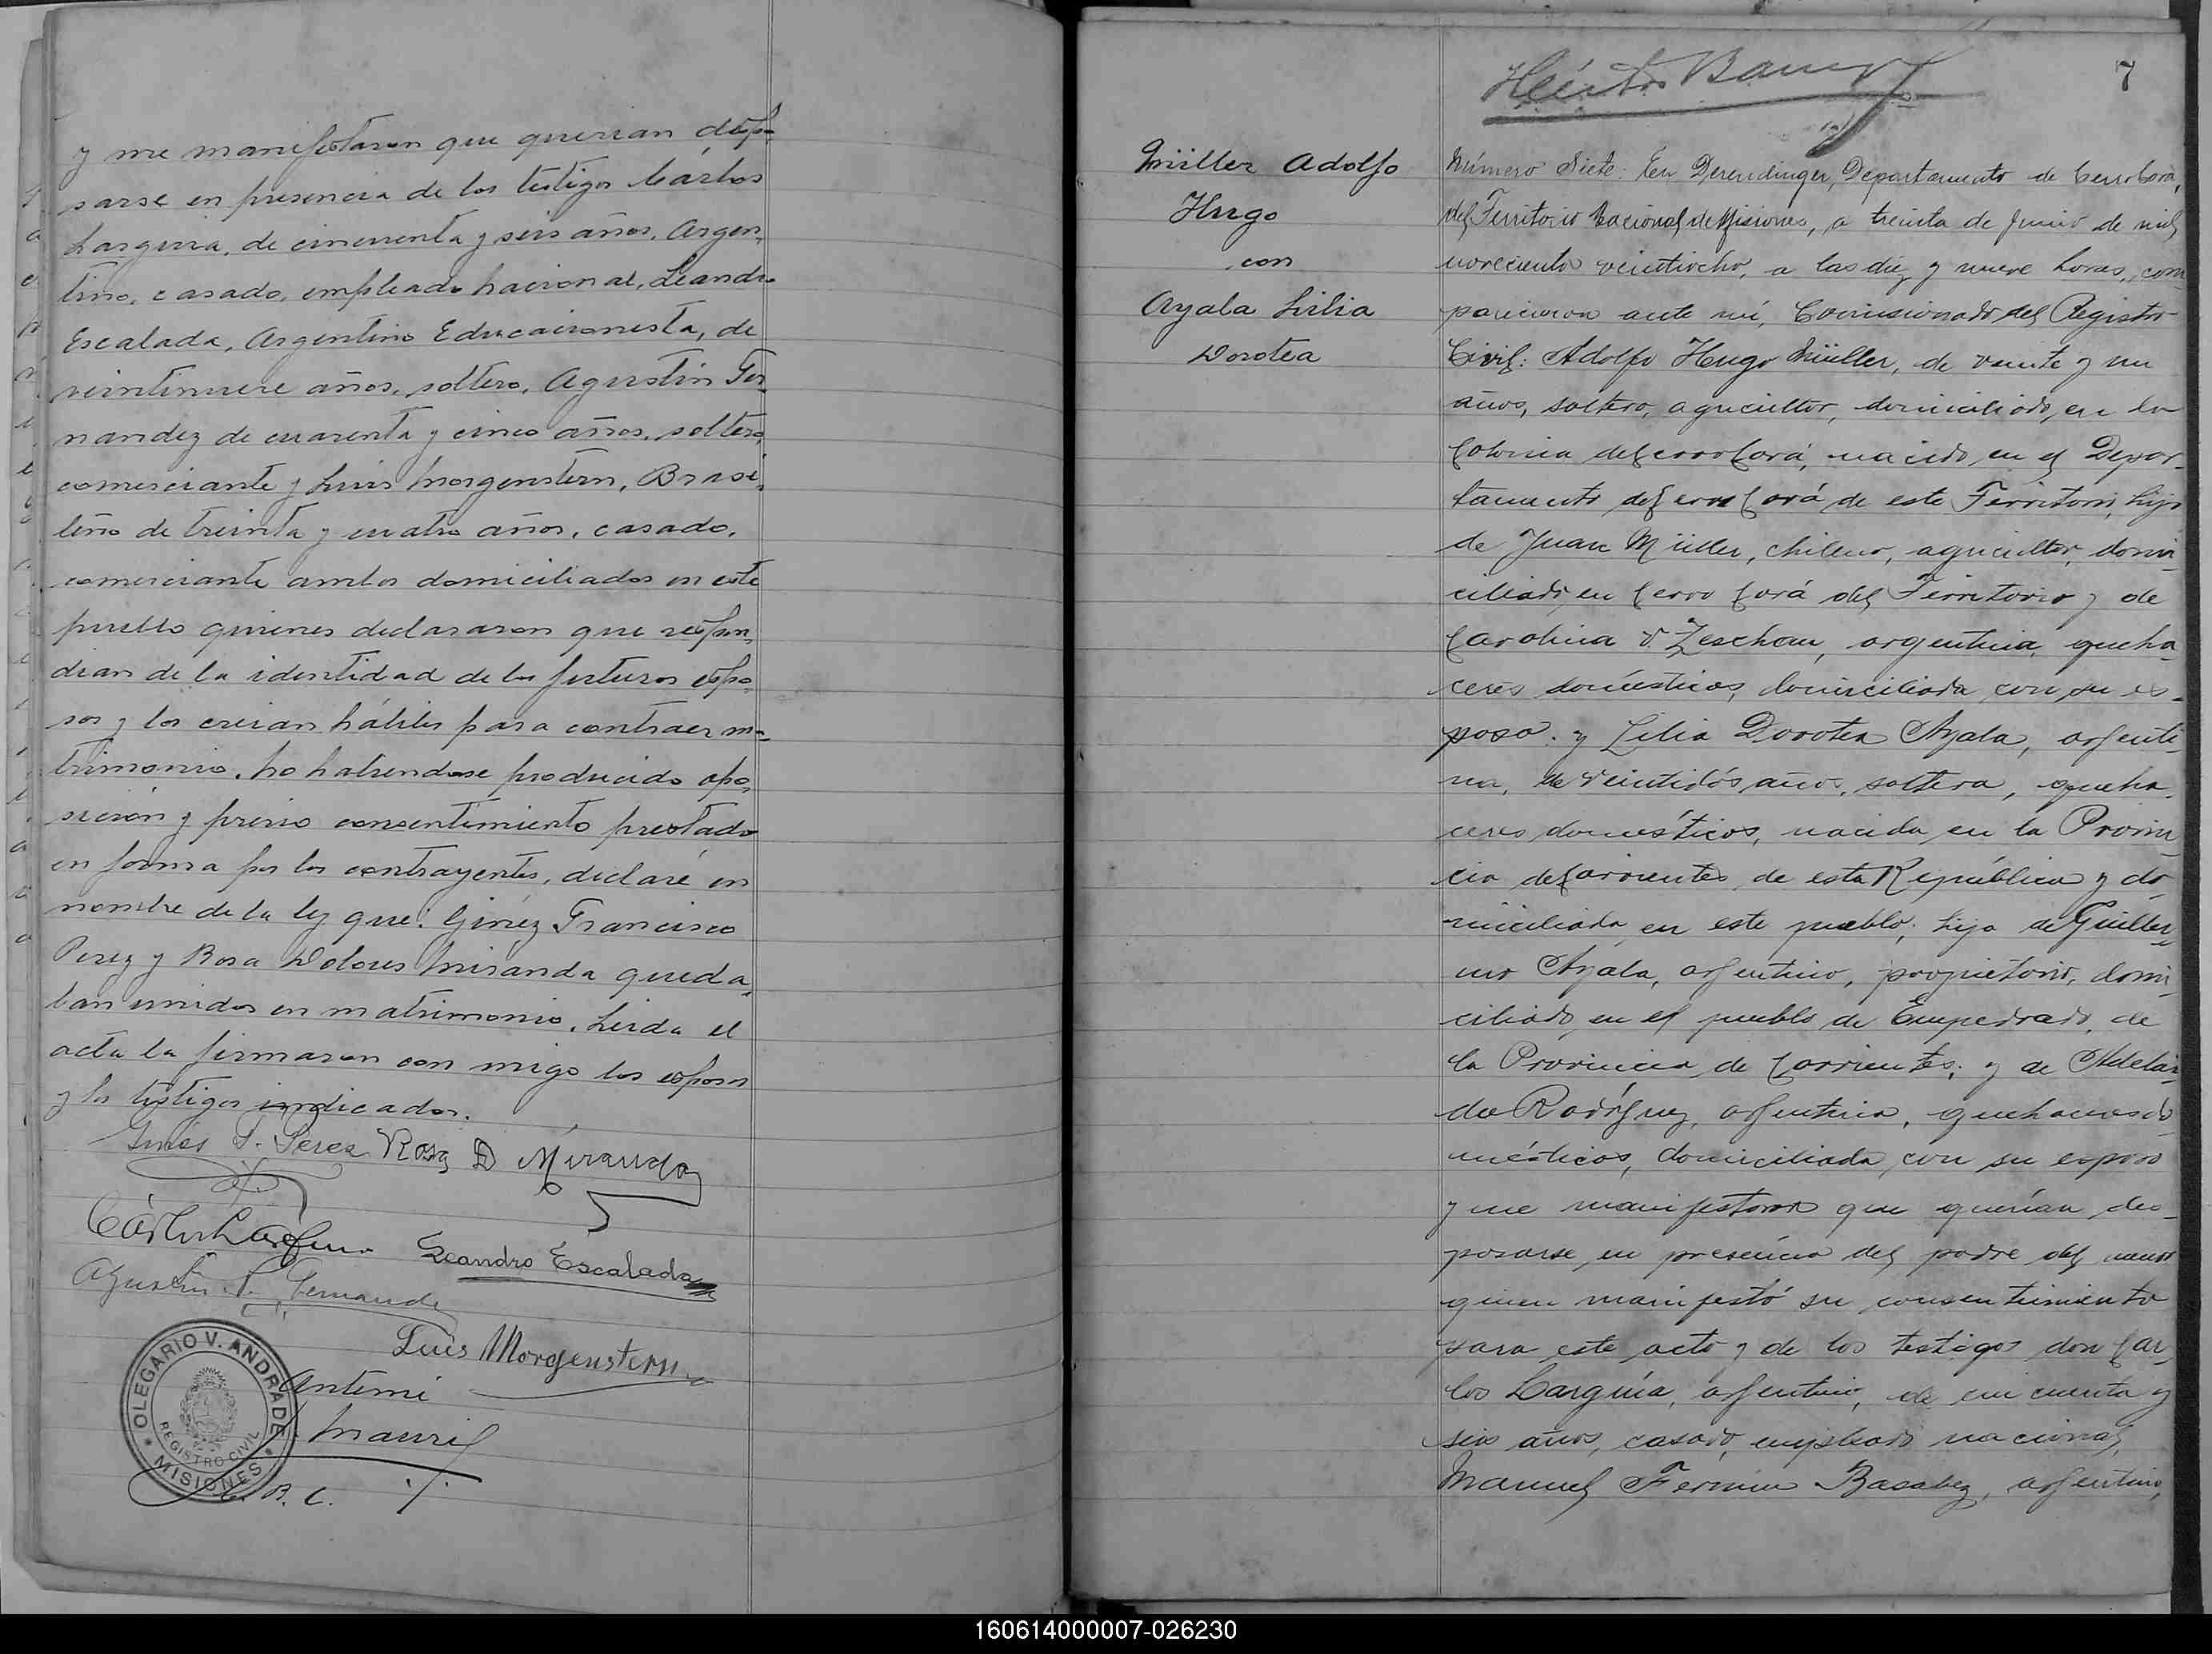 y me manifestaron que querian despo-
sarse en presencia de los testigos Cárlos
Larguia, de cincuenta y seis años, Argen-
tino, casado, empleado Nacional, Leandro
Escalada, Argentino Educacionista, de
veintinueve años, soltero, Agustin Fer-
nandez de cuarenta y cinco años, soltero,
comerciante y Luis Morgenstern, Brasi-
leño de treinta y cuatro años, casado,
comerciante ambos domiciliados en este
pueblo quienes declararon que respon-
dian de la identidad de los futuros espo-
sos y los creian hábiles para contraer ma-
trimonio. No habiendose producido opo-
sición y previo consentimiento prestado
en forma por los contrayentes, declaré en
nombre de la ley que: Ginéz Francisco
Perez y Rosa Dolores Miranda queda-
ban unidos en matrimonio. Leida el
acta la firmaron con migo los esposos
y los testigos indicados.
Ginés F. Perez Rosa D Miranda
Cárlos Larguia Leandro Escalada
Agustin F. Fernandez
Luis Morgenstern
Antemi
OLEGARIO V. ANDRADE
REGISTRO CIVIL
MISIONES
7
Müller Adolfo
Hugo
con
Ayala Lilia
Dorotea
Número Siete: En Derendinger, Departamento de Cerro Corá,
del Territorio Nacional de Misiones, a treinta de Junio de mil
novecientos veintiocho, a las diez y nueve horas, com-
parecieron ante mí, Comisionado del Registro
Civil: Adolfo Hugo Müller, de veinte y un
años, soltero, agricultor, domiciliado en la
Colonia de Cerro Corá, nacido en el Depar-
tamento de Cerro Corá de este Territorio, hijo
de Juan Müller, chileno, agricultor, domi-
ciliado en Cerro Corá del Territorio y de
Carolina V. Zeschau, argentina, queha-
ceres domésticos, domiciliada con su es-
poso. y Lilia Dorotea Ayala, argenti-
na, de veintidós años, soltera, queha-
ceres domésticos, nacida en la Provin-
cia de Corrientes, de esta República y do-
miciliada en este pueblo; hija de Guiller-
mo Ayala, argentino, propietario, domi-
ciliado en el pueblo de Empedrado, de
la Provincia de Corrientes; y de Adelai-
da Rodríguez, argentina, quehaceres do-
mésticos, domiciliada con su esposo
y me manifestaron que querían des-
posarse en presencia del padre del menor
quien manifestó su consentimiento
para este acto y de los testigos don Car-
los Larguía, argentino, de cincuenta y
seis años, casado, empleado nacional,
Manuel Fermin Basabez, argentino,
160614000007-026230